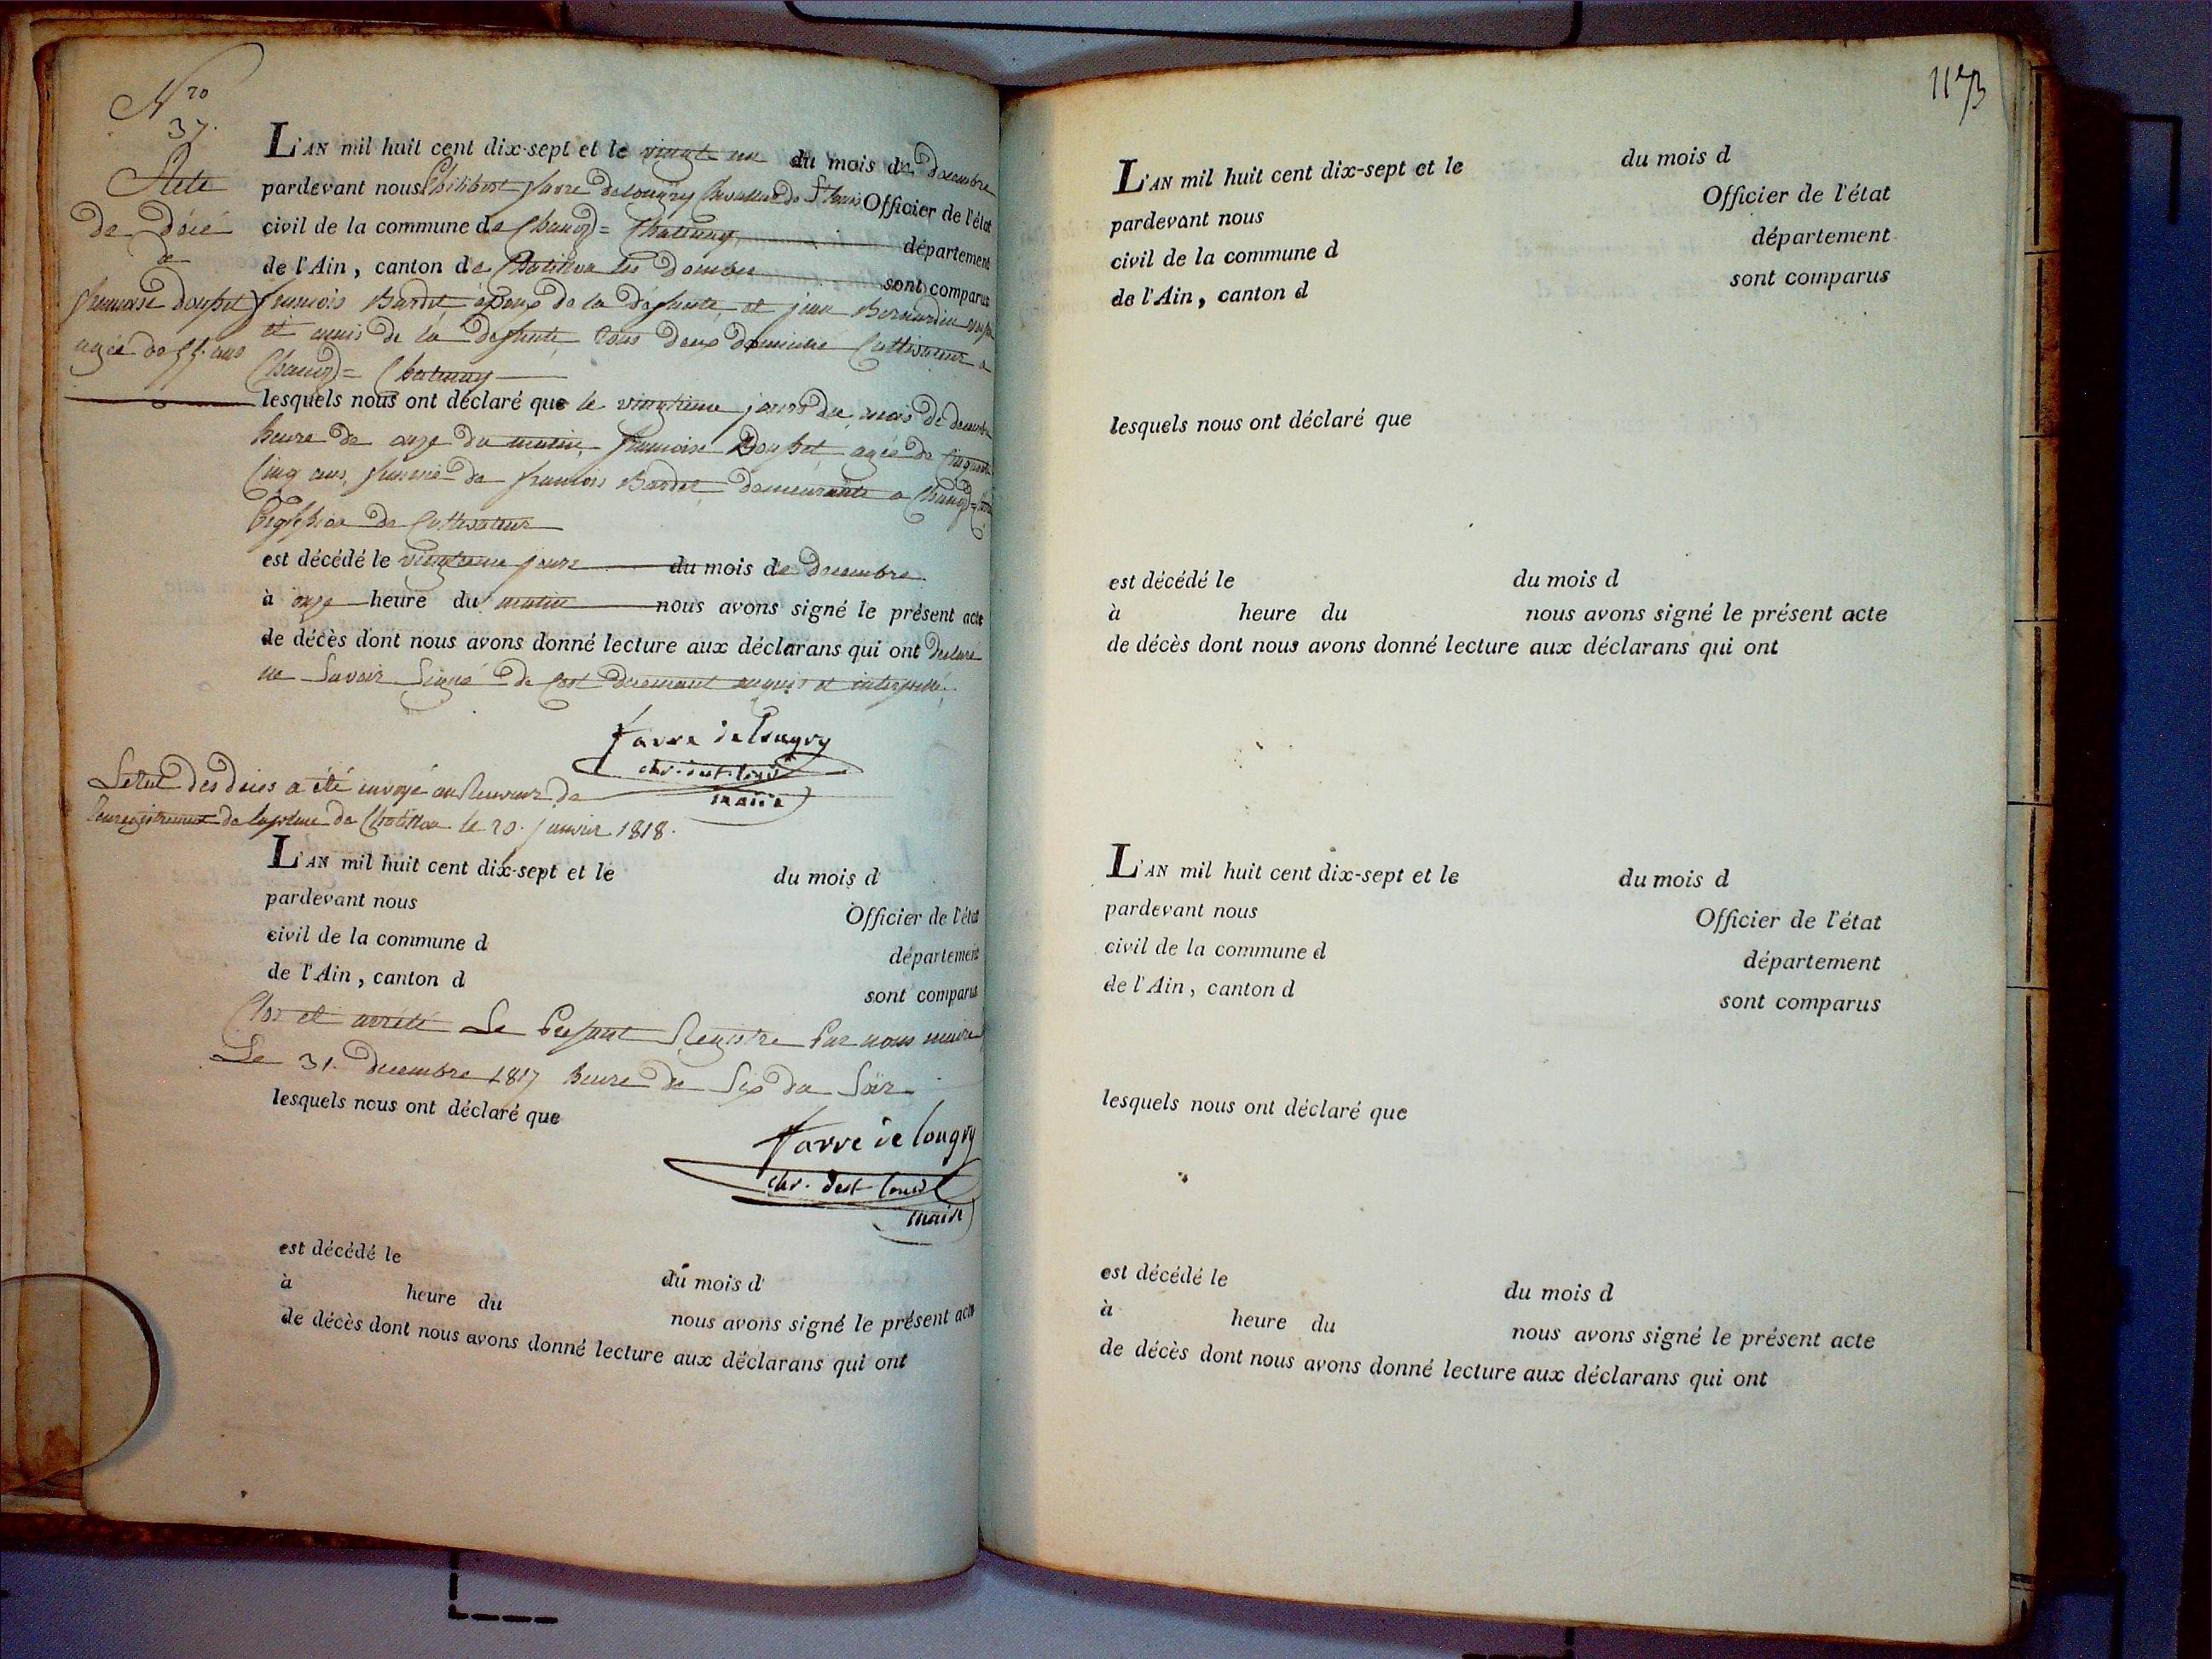 N.ro
37.
Acte
de décè
de
françoise
agée de 55. ans
L'AN mil huit cent dix-sept et le vingt un du mois de decembre
pardevant nous Philibert favre delongry Chevallier de St Louis Officier de l'état
civil de la commune de Chanoz= Chatenay département
de l'Ain, canton de Chatillon les dombes sont comparus
françois Bardet époux de la défunte, et jean Bernardin
et amis de la defunte tous deux domicilié Cultivateur a
Chanoz= Chatenay
lesquels nous ont déclaré que le vingtieme jours du mois de decembre
heure de onze du matin, françoise agée de Cinquante
Cinq ans, femme de francois Bardet demeurante a Chanoz=
de Cultivateur
est décédé le vingtieme jours du mois de decembre
à onze heure du matin nous avons signé le présent acte
de décès dont nous avons donné lecture aux déclarans qui ont declare
ne Savoir Signé de Cest duement requis et interpellé.
favre de Longry
chr. de st. Louis
maire
Letat des deces a été envoyé au Receveur de
l'enregistrement de Chatillon le 20. janvier 1818.
L'AN mil huit cent dix-sept et le du mois d
pardevant nous Officier de l'état
civil de la commune d département
de l'Ain, canton d sont comparus
Clos et arreté Le Present Registre Par nous maire
Le 31. decembre 1817 heure de Six du Soir
lesquels nous ont déclaré que
favre de longry
chr. de st Louis
maire
est décédé le du mois d
à heure du nous avons signé le présent acte
de décès dont nous avons donné lecture aux déclarans qui ont
L'AN mil huit cent dix-sept et le du mois d
pardevant nous Officier de l'état
civil de la commune d département
de l'Ain, canton d sont comparus
lesquels nous ont déclaré que
est décédé le du mois d
à heure du nous avons signé le présent acte
de décès dont nous avons donné lecture aux déclarans qui ont
L'AN mil huit cent dix-sept et le du mois d
pardevant nous Officier de l'état
civil de la commune d département
de l'Ain, canton d sont comparus
lesquels nous ont déclaré que
est décédé le du mois d
à heure du nous avons signé le présent acte
de décès dont nous avons donné lecture aux déclarans qui ont